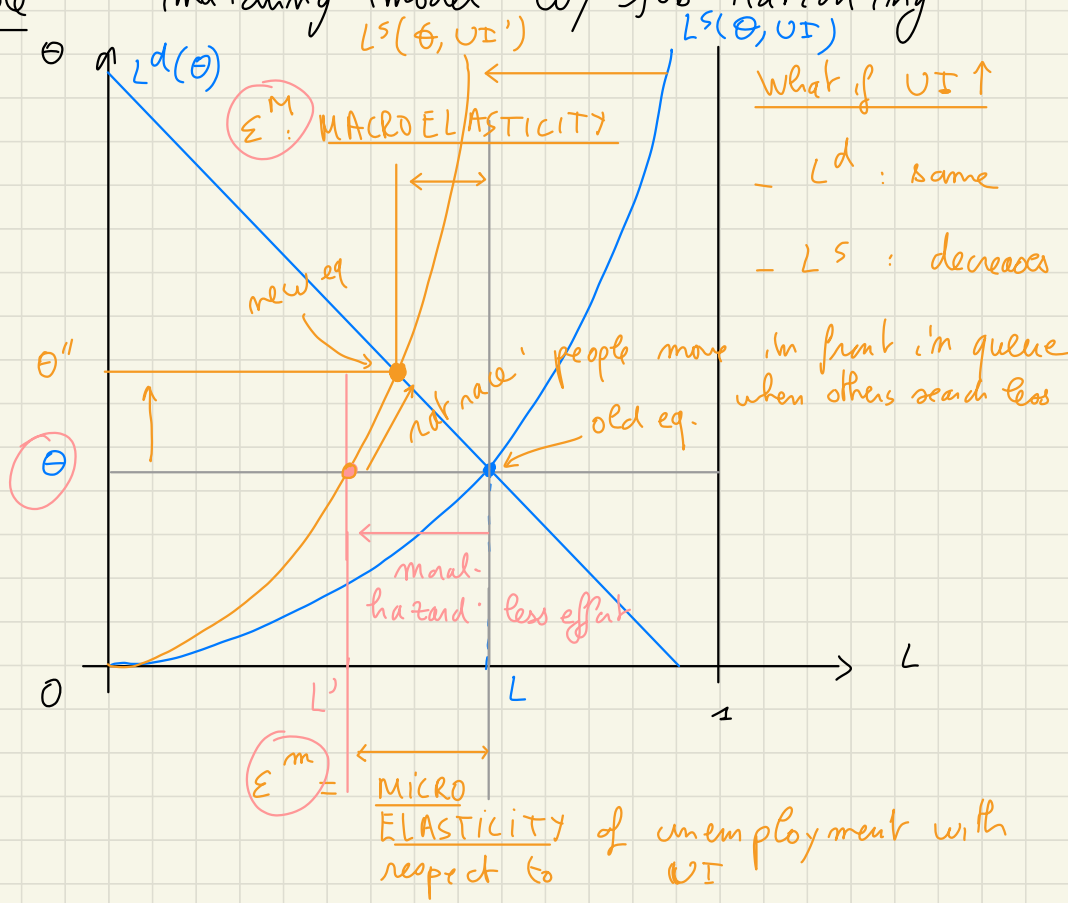 matching model w/ job rationing
θ
L^d(θ)
L^s(θ, UI')
L^s(θ, UI)
What if UI ↑
ε^M : MACROELASTICITY
- L^d : same
- L^s : decreases
new eq
θ"
rat race : people move in front in queue
when others search less
old eq.
θ
moral-
hazard : less effort
O
L'
L
1
L
ε^m = MICRO
ELASTICITY of unemployment with
respect to UI